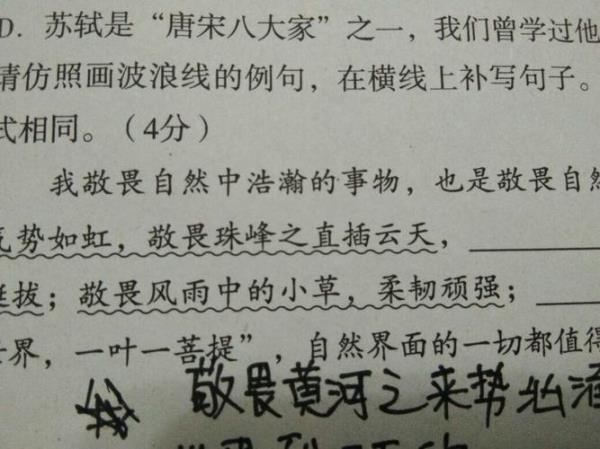 D．苏轼是“唐宋八大家”之一，我们曾学过他
请仿照画波浪线的例句，在横线上补写句子。
式相同。（4分）
我敬畏自然中浩瀚的事物，也是敬畏自然
气势如虹，敬畏珠峰之直插云天，
挺拔；敬畏风雨中的小草，柔韧顽强；
世界，一叶一菩提”，自然界面的一切都值得
敬畏黄河之来势汹涌